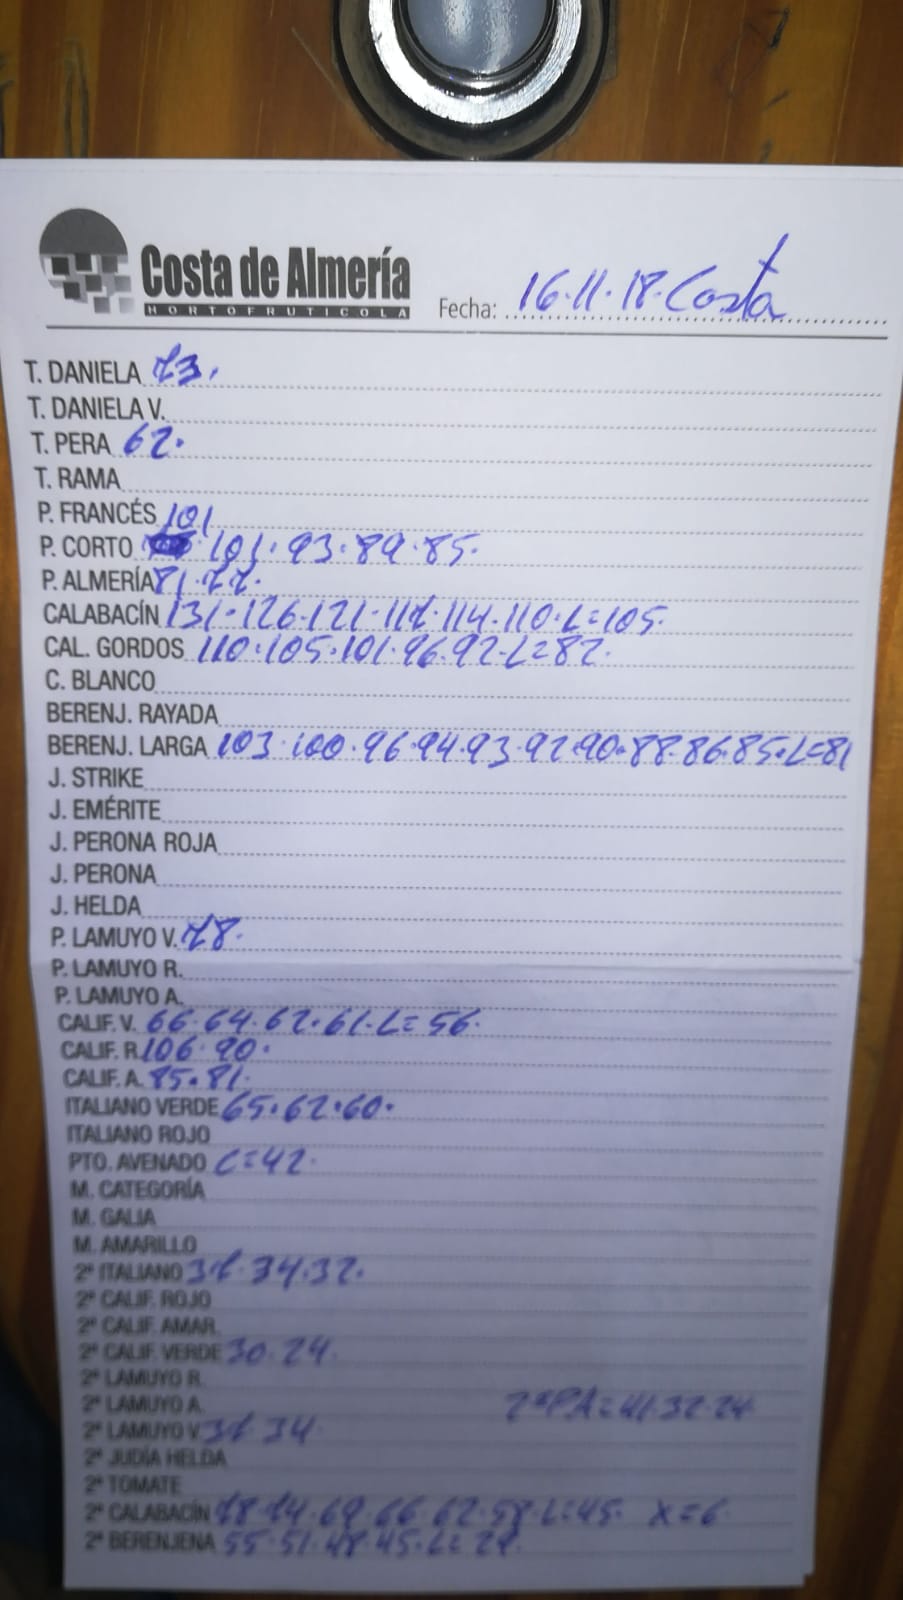 Costa de Almería
HORTOFRUTICOLA
Fecha: 16.11.18. Costa
T. DANIELA 73.
T. DANIELA V.
T. PERA 62.
T. RAMA
P. FRANCÉS 101
P. CORTO 101. 93. 89. 85.
P. ALMERÍA 81. 77.
CALABACÍN 131. 126. 121. 117. 114. 110. L=105.
CAL. GORDOS 110. 105. 101. 96. 92. L=82.
C. BLANCO
BERENJ. RAYADA
BERENJ. LARGA 103. 100. 96. 94. 93. 92. 90. 88. 86. 85. L=81
J. STRIKE
J. EMÉRITE
J. PERONA ROJA
J. PERONA
J. HELDA
P. LAMUYO V. 78.
P. LAMUYO R.
P. LAMUYO A.
CALIF. V. 66. 64. 62. 61. L=56.
CALIF. R. 106. 90.
CALIF. A. 85. 81.
ITALIANO VERDE 65. 62. 60.
ITALIANO ROJO
PTO. AVENADO C=42.
M. CATEGORÍA
M. GALIA
M. AMARILLO
2ª ITALIANO 37. 34. 32.
2ª CALIF. ROJO
2ª CALIF. AMAR.
2ª CALIF. VERDE 30. 24.
2ª LAMUYO R.
2ª LAMUYO A. 2ªPA=41. 32. 24
2ª LAMUYO V. 37. 34.
2ª JUDÍA HELDA
2ª TOMATE
2ª CALABACÍN 78. 74. 69. 66. 62. 58. L=45. X=6
2ª BERENJENA 55. 51. 48. 45. L=